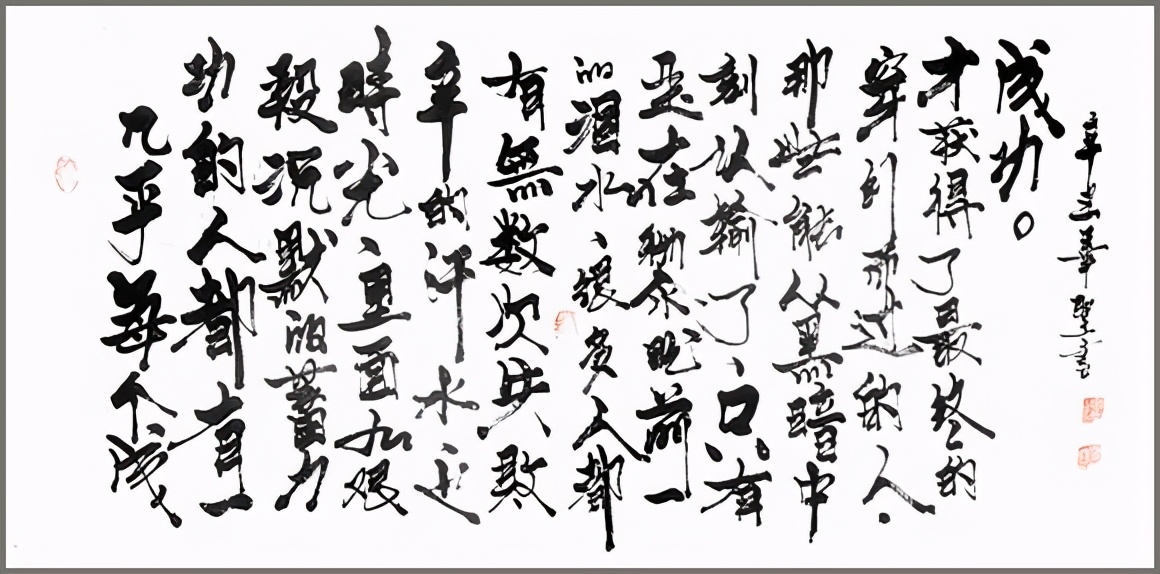 几乎每个成
功的人都有一
段沉默的蓄力
時光、里面艰
辛的汗水、还
有無数次失败
的泪水、很多人都
是在黎明前一
刻认输了、只有
那些能从黑暗中
穿行而过的人
才获得了最终的
成功。
辛丑書